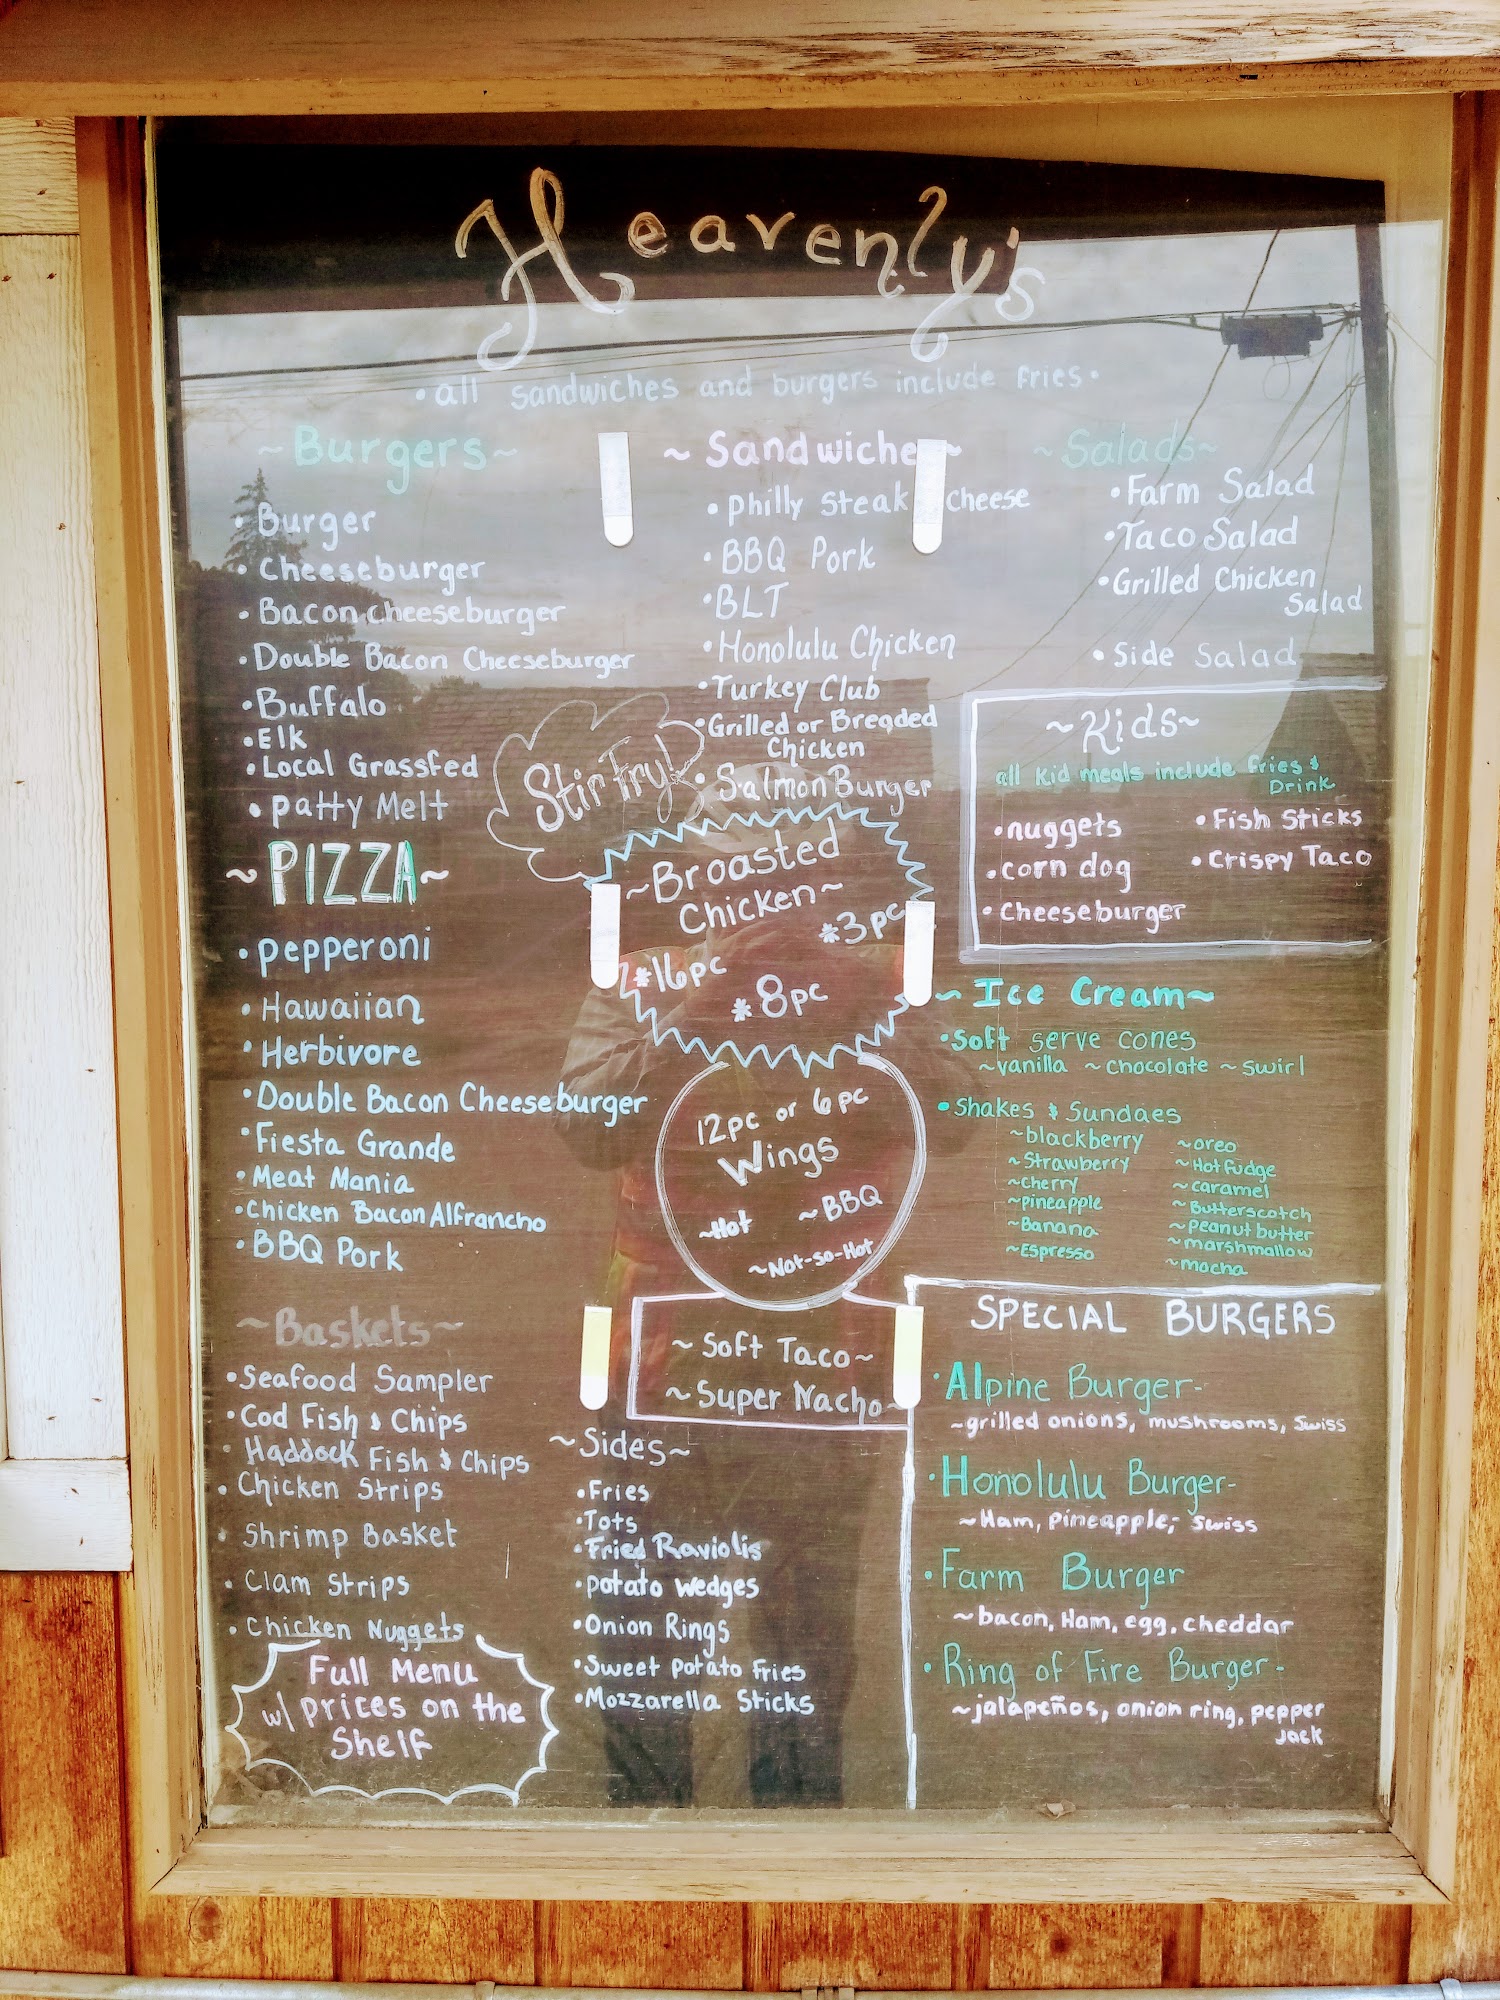 Heavenly's
• all sandwiches and burgers include fries •
~Burgers~
• Burger
• Cheeseburger
• Bacon cheeseburger
• Double Bacon Cheeseburger
• Buffalo
• Elk
• Local Grassfed
• Patty Melt
~PIZZA~
• Pepperoni
• Hawaiian
• Herbivore
• Double Bacon Cheeseburger
• Fiesta Grande
• Meat Mania
• Chicken Bacon Alfrancho
• BBQ Pork
~Baskets~
• Seafood Sampler
• Cod Fish & Chips
• Haddock Fish & Chips
• Chicken Strips
• Shrimp Basket
• Clam Strips
• Chicken Nuggets
Full Menu
w/ prices on the
Shelf
~Sandwiche~
• Philly Steak Cheese
• BBQ Pork
• BLT
• Honolulu Chicken
• Turkey Club
• Grilled or Breaded
Chicken
• Salmon Burger
Stir Fry!
~Broasted
Chicken~
*3pc
*16pc
*8pc
12pc or 6pc
Wings
~Hot
~BBQ
~Not-so-Hot
~Soft Taco~
~Super Nacho~
~Sides~
• Fries
• Tots
• Fried Raviolis
• Potato Wedges
• Onion Rings
• Sweet Potato Fries
• Mozzarella Sticks
~Salads~
• Farm Salad
• Taco Salad
• Grilled Chicken
Salad
• Side Salad
~Kids~
all kid meals include fries &
Drink
• nuggets
• corn dog
• Cheeseburger
• Fish Sticks
• Crispy Taco
~Ice Cream~
• Soft serve cones
~vanilla ~chocolate ~swirl
• Shakes & Sundaes
~blackberry
~Strawberry
~cherry
~pineapple
~Banana
~Espresso
~oreo
~Hot fudge
~caramel
~Butterscotch
~Peanut butter
~marshmallow
~mocha
SPECIAL BURGERS
• Alpine Burger-
~grilled onions, mushrooms, Swiss
• Honolulu Burger-
~Ham, Pineapple, Swiss
• Farm Burger
~bacon, Ham, egg, cheddar
• Ring of Fire Burger-
~jalapeños, onion ring, pepper
jack